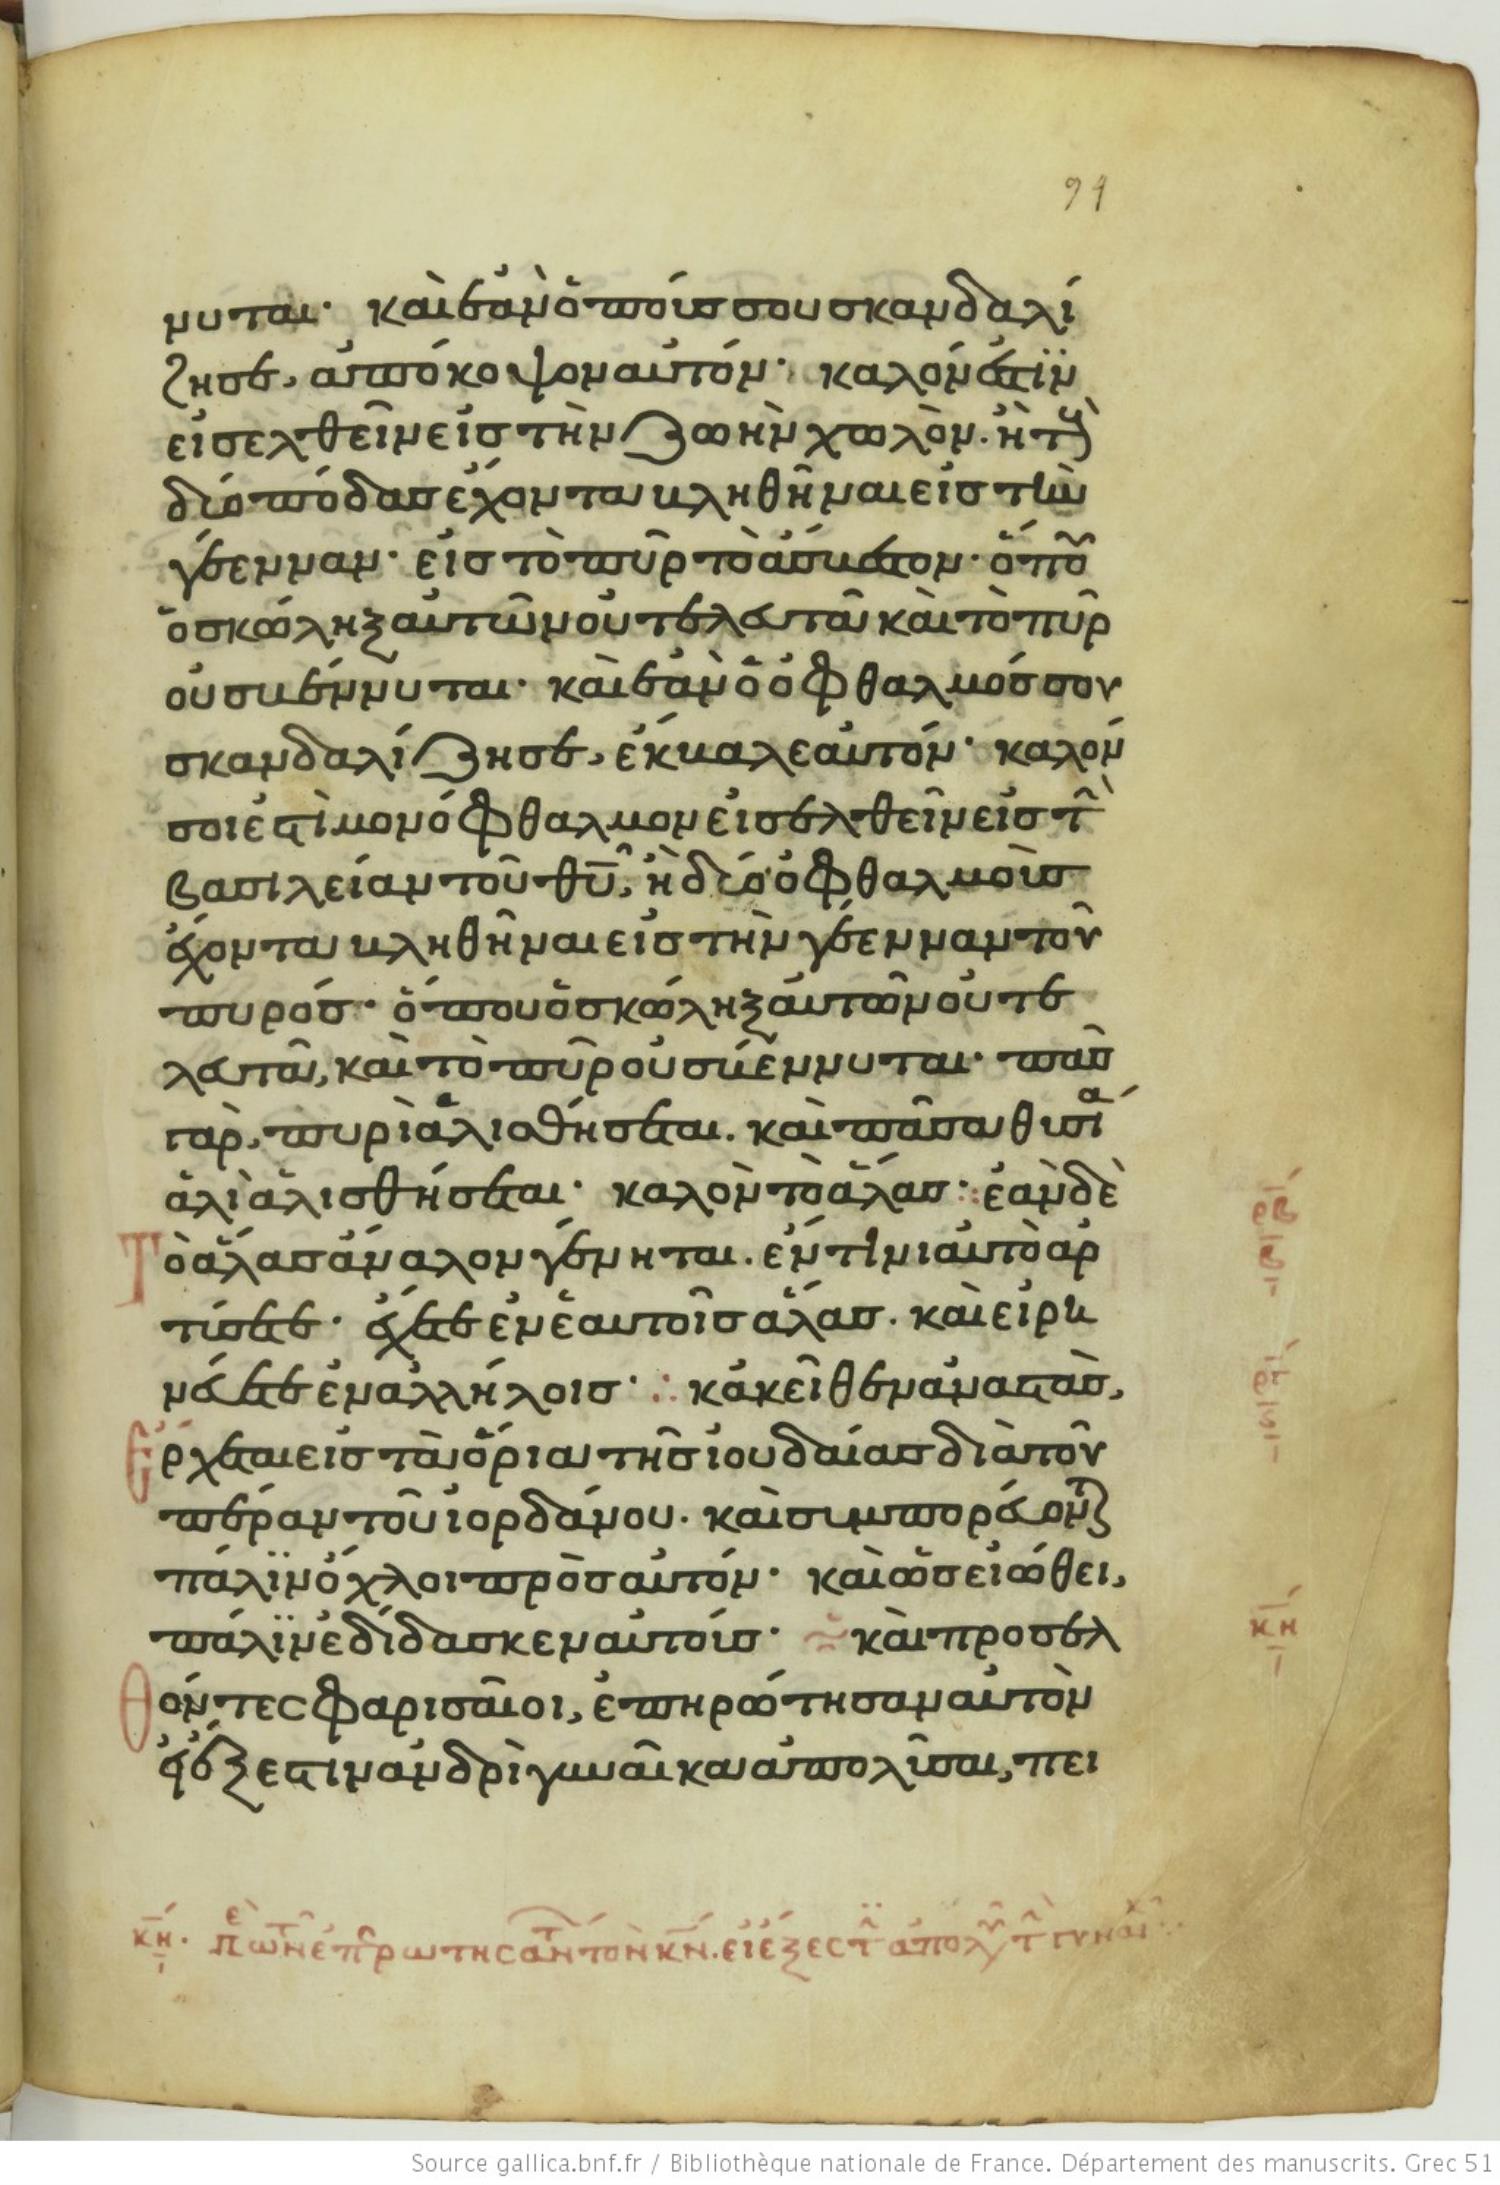 94
νυται· καὶ ἐὰν ὁ πούς σου σκανδαλί
ζησε, ἀπόκοψον αὐτόν· καλόν ἐστϊν
εἰσελθεῖν εἰς τὴν ζωὴν χωλὸν. ἢ τοὺ
δύο πόδας ἔχοντα βληθῆναι εἰς τὴν
γέενναν· εἰς τὸ πῦρ τὸ ἄσβεστον· ὅπου
ὁ σκώληξ αὐτῶν οὐ τελευτᾶ καὶ τὸ πῦρ
οὐ σβέννυται· καὶ ἐὰν ὁ ὀφθαλμός σου
σκανδαλίζησε, ἔκβαλε αὐτόν· καλόν
σοι ἐστὶ μονόφθαλμον εἰσελθεῖν εἰς τὴν
βασιλείαν τοῦ θῦ, ἢ δύο ὀφθαλμοὺς
ἔχοντα βληθῆναι εἰς τὴν γέενναν τοῦ
πυρός· ὅπου ὁ σκώληξ αὐτῶν οὐ τε
λευτᾶ, καὶ τὸ πῦρ οὐ σβέννυται· πᾶς
γὰρ, πυρὶ ἁλισθήσεται. καὶ πᾶσα θυσία
ἁλὶ ἁλισθήσεται· καλὸν τὸ ἅλας· ἐὰν δὲ
Τὸ ἅλας ἄναλον γένηται. ἐν τίνι αὐτὸ ἀρ
τύσετε· ἔχετε ἐν ἑαυτοῖς ἅλας. καὶ εἰρη
νεύετε ἐν ἀλλήλοις· κἀκεῖθεν ἀναστὰς,
Ἔρχεται εἰς τὰ ὅρια τῆς ἰουδαίας διὰ τοῦ
πέραν τοῦ ἰορδάνου. καὶ συμπορεύονται
πάλϊν ὄχλοι πρὸς αὐτόν· καὶ ὡς εἰώθει,
πάλϊν ἐδίδασκεν αὐτούς· καὶ προσελ
θόντες φαρισαῖοι, ἐπηρώτησαν αὐτὸν
εἰ ἔξεστιν ἀνδρὶ γυναῖκα ἀπολῦσαι, πει
ρβ
β
ργ
κη
κη. πε τῶν ἐπερωτησάντων τὸν κν. εἰ ἔξεστι ἀπολῦ τ γυναῖκ
Source gallica.bnf.fr / Bibliothèque nationale de France. Département des manuscrits. Grec 51